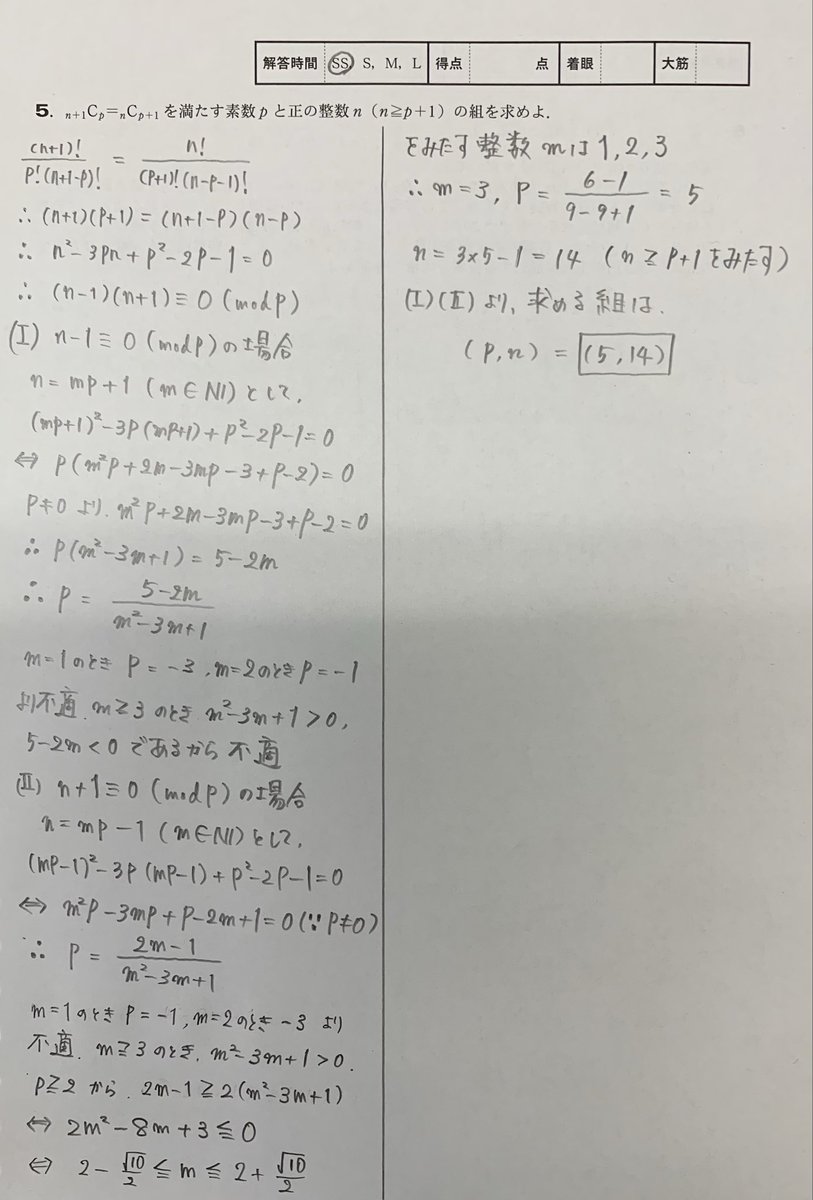 解答時間 SS S, M, L 得点 点 着眼 大筋
5. ₙ₊₁Cₚ=ₙCₚ₊₁ を満たす素数 p と正の整数 n (n≧p+1) の組を求めよ.
(n+1)!/p!(n+1-p)! = n!/(p+1)!(n-p-1)!
∴ (n+1)(p+1) = (n+1-p)(n-p)
∴ n²-3pn+p²-2p-1=0
∴ (n-1)(n+1)≡0 (mod p)
(I) n-1≡0 (mod p) の場合
n=mp+1 (m∈N) として,
(mp+1)²-3p(mp+1)+p²-2p-1=0
⇔ p(m²p+2m-3mp-3+p-2)=0
p≠0 より. m²p+2m-3mp-3+p-2=0
∴ p(m²-3m+1) = 5-2m
∴ p = 5-2m/m²-3m+1
m=1のとき p=-3, m=2のとき p=-1
より不適. m≧3 のとき. m²-3m+1>0,
5-2m<0 であるから 不適
(II) n+1≡0 (mod p) の場合
n=mp-1 (m∈N) として,
(mp-1)²-3p(mp-1)+p²-2p-1=0
⇔ m²p-3mp+p-2m+1=0 (∵p≠0)
∴ p = 2m-1/m²-3m+1
m=1のとき p=-1, m=2のとき -3 より
不適. m≧3 のとき. m²-3m+1>0.
p≧2 から. 2m-1≧2(m²-3m+1)
⇔ 2m²-8m+3≦0
⇔ 2-√10/2≦m≦2+√10/2
をみたす整数 m は 1, 2, 3
∴ m=3, p = 6-1/9-9+1 = 5
n=3×5-1=14 (n≧p+1 をみたす)
(I)(II) より, 求める組は.
(p,n) = (5,14)